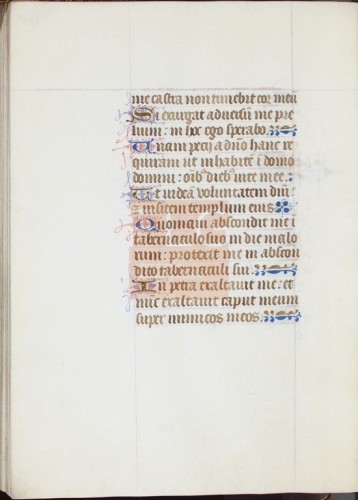 me castra non timebit cor meū
Si exurgat adversū me pre
lium: in hoc ego sperabo.
Unam pecij a dño hanc re
quiram ut inhabitē ī domo
domini: oīb⁹ dieb⁹ vite mee:
Ut videā voluntatem dñi:
⁊ visitem templum eius
Quoniam abscondit me ī
tabernaculo suo in die malo
rum: protexit me in abscon
dito tabernaculi sui.
In petra exaltavit me: et
nūc exaltavit caput meum
super inimicos meos.